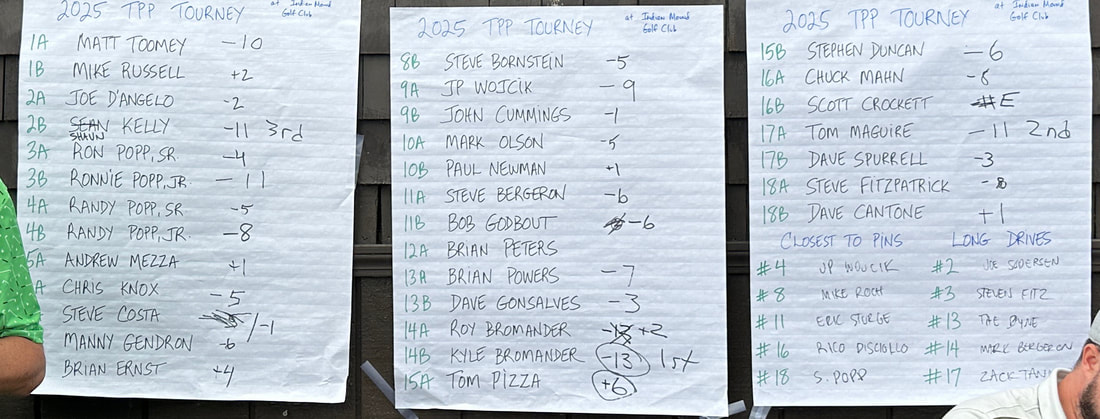 2025 TPP TOURNEY at Indian Mound Golf Club
1A MATT TOOMEY -10
1B MIKE RUSSELL +2
2A JOE D'ANGELO -2
2B SEAN SHAUN KELLY -11 3rd
3A RON POPP, SR. -4
3B RONNIE POPP, JR. -11
4A RANDY POPP, SR -5
4B RANDY POPP, JR. -8
5A ANDREW MEZZA +1
A CHRIS KNOX -5
STEVE COSTA /-1
MANNY GENDRON -6
BRIAN ERNST +4
2025 TPP TOURNEY at Indian Mound Golf Club
8B STEVE BORNSTEIN -5
9A JP WOJCIK -9
9B JOHN CUMMINGS -1
10A MARK OLSON -5
10B PAUL NEWMAN +1
11A STEVE BERGERON -6
11B BOB GODBOUT -6
12A BRIAN PETERS
13A BRIAN POWERS -7
13B DAVE GONSALVES -3
14A ROY BROMANDER +2
14B KYLE BROMANDER -13 1st
15A TOM PIZZA +6
2025 TPP TOURNEY at Indian Mound Golf Club
15B STEPHEN DUNCAN -6
16A CHUCK MAHN -8
16B SCOTT CROCKETT E
17A TOM MAGUIRE -11 2nd
17B DAVE SPURRELL -3
18A STEVE FITZPATRICK -8
18B DAVE CANTONE +1
CLOSEST TO PINS LONG DRIVES
#4 JP WOJCIK #2 JOE
#8 MIKE ROCH #3 STEVEN FITZ
#11 ERIC STURGE #13
#16 RICO DISCIOLLO #14 MARK BERGERON
#18 S. POPP #17 ZACK